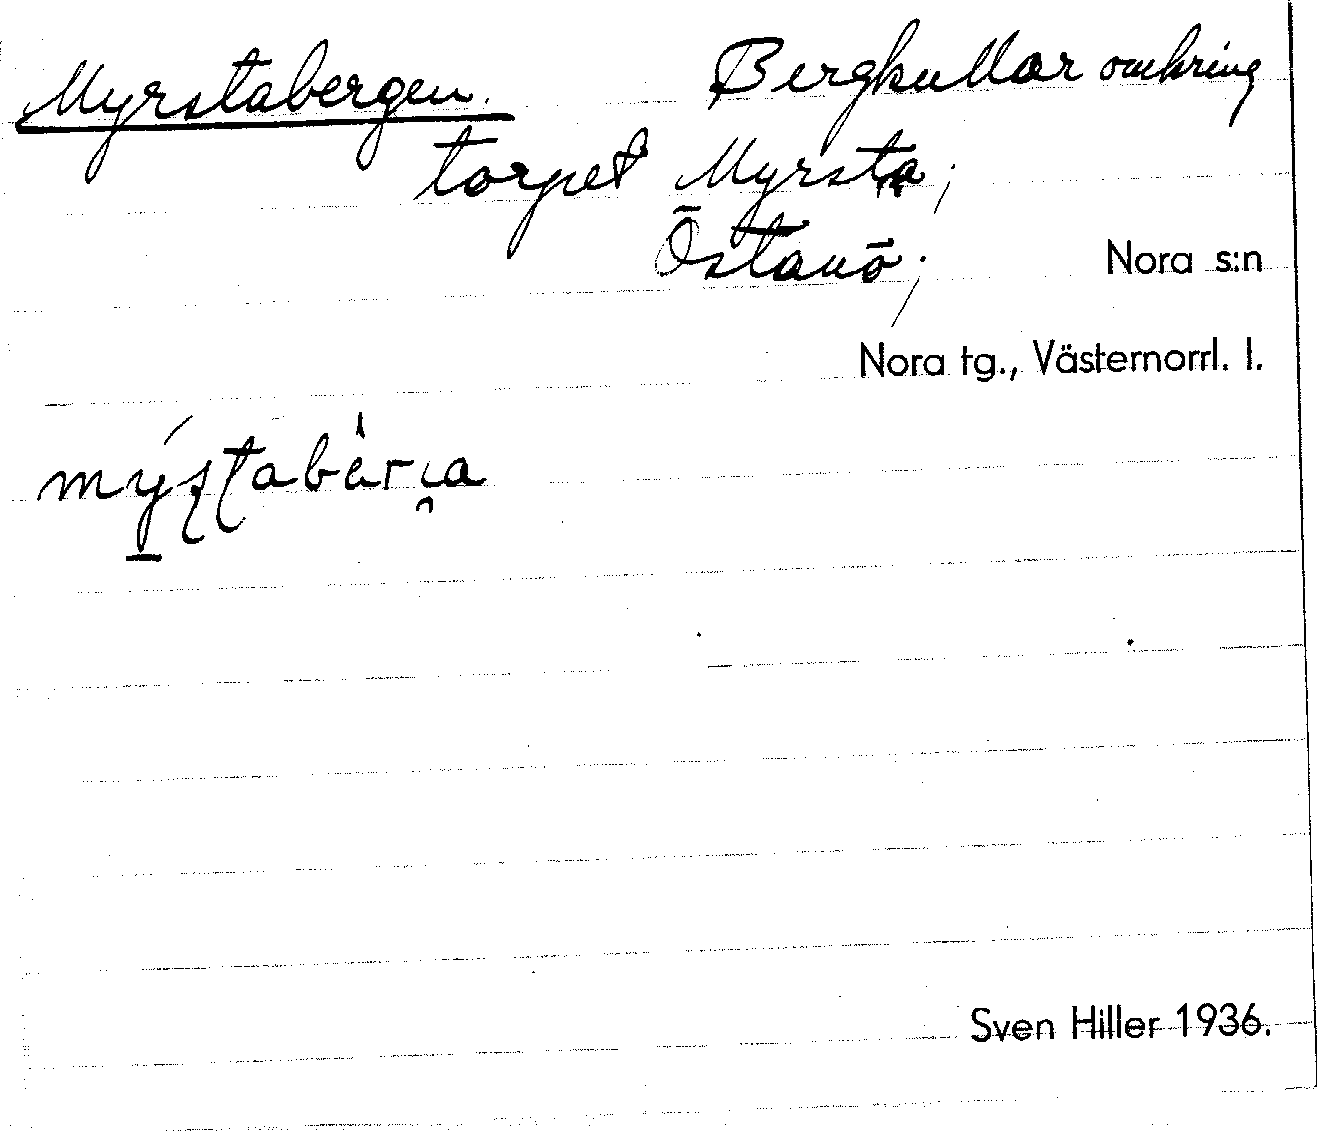 Myrstabergen. Bergkullar omkring
torpet Myrsta;
Östanö; Nora s:n
Nora tg., Västernorrl. l.
Sven Hiller 1936.